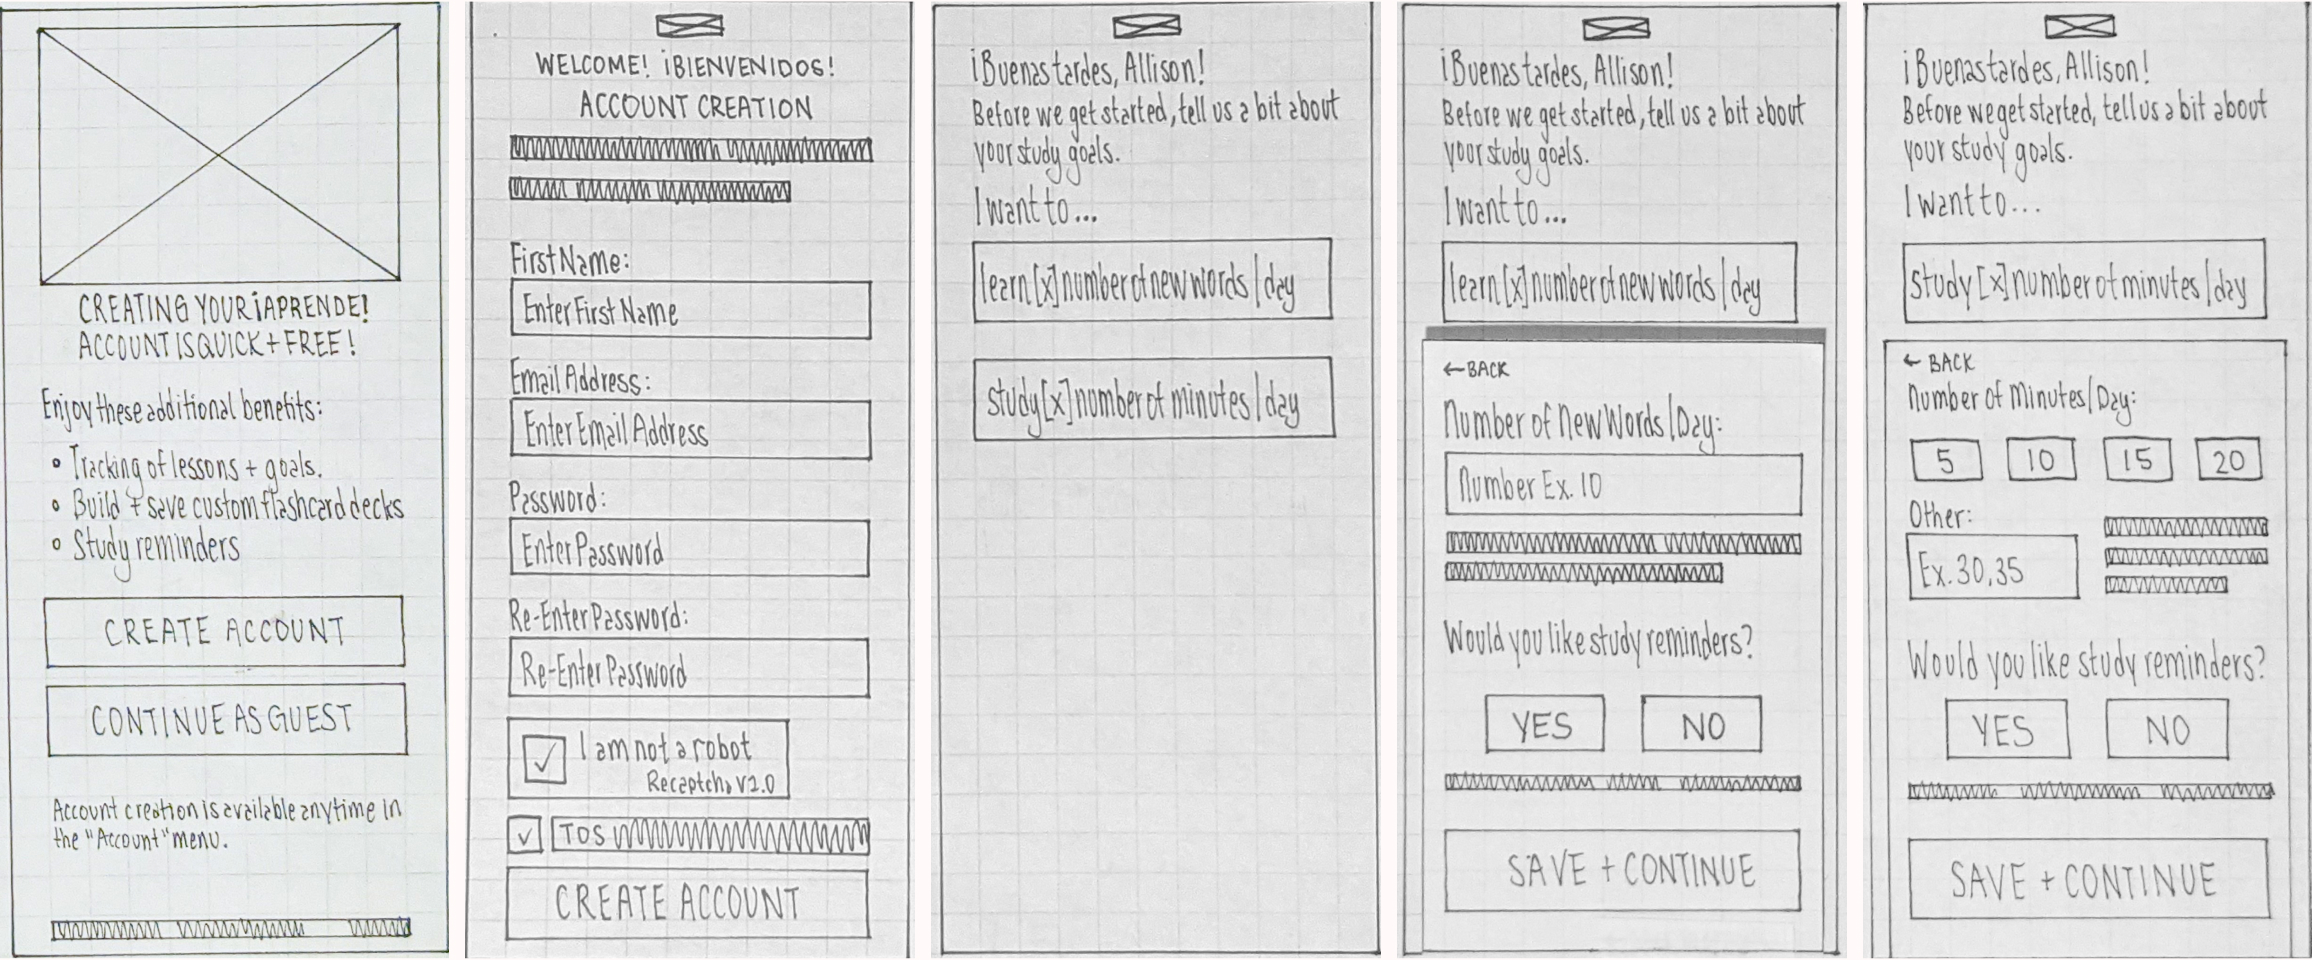 CREATING YOUR ¡APRENDE!
ACCOUNT IS QUICK + FREE!
Enjoy these additional benefits:
Tracking of lessons + goals.
Build + save custom flashcard decks
Study reminders
CREATE ACCOUNT
CONTINUE AS GUEST
Account creation is available anytime in
the "Account" menu.
WELCOME! ¡BIENVENIDOS!
ACCOUNT CREATION
First Name:
Enter First Name
Email Address:
Enter Email Address
Password:
Enter Password
Re-Enter Password:
Re-Enter Password
I am not a robot
Recaptcha V2.0
TOS
CREATE ACCOUNT
¡Buenas tardes, Allison!
Before we get started, tell us a bit about
your study goals.
I want to...
learn [x] number of new words / day
study [x] number of minutes / day
¡Buenas tardes, Allison!
Before we get started, tell us a bit about
your study goals.
I want to...
learn [x] number of new words / day
← BACK
Number of New Words / Day:
Number Ex. 10
Would you like study reminders?
YES NO
SAVE + CONTINUE
¡Buenas tardes, Allison!
Before we get started, tell us a bit about
your study goals.
I want to...
study [x] number of minutes / day
← BACK
Number of Minutes / Day:
5 10 15 20
Other:
Ex. 30, 35
Would you like study reminders?
YES NO
SAVE + CONTINUE